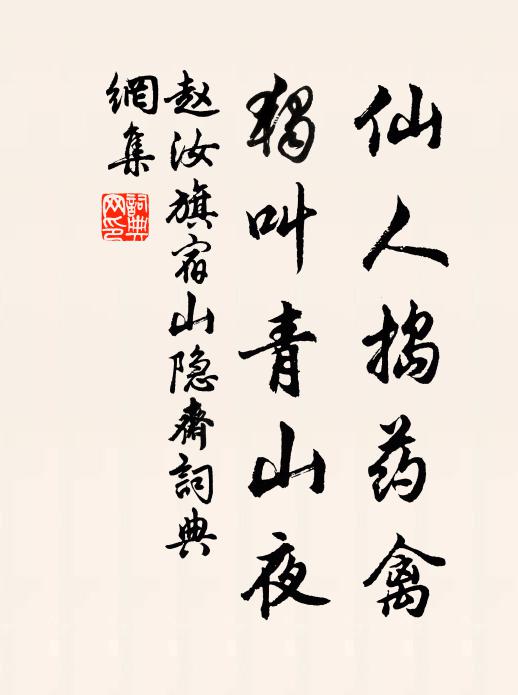 仙人捣药禽
独叫青山夜
赵汝旗宿山隐斋詞典
網集
詞典
网印